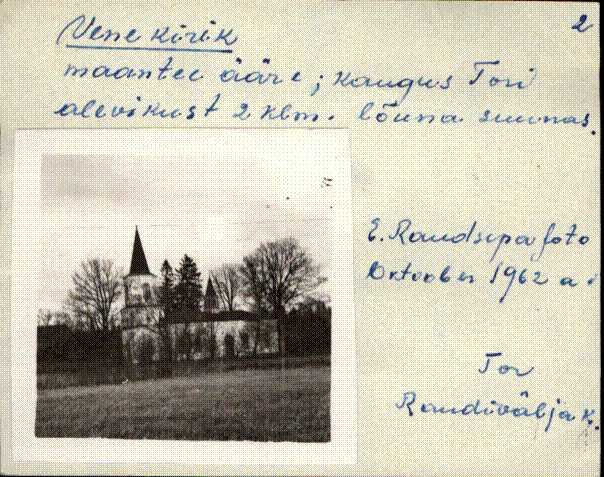 2
Vene kirik
maantee ääre; kaugus Tori
alevikust 2 klm. lõuna suunas.
E. Raudsepa foto
Oktoober 1962 a.
Tor
Randivälja k.